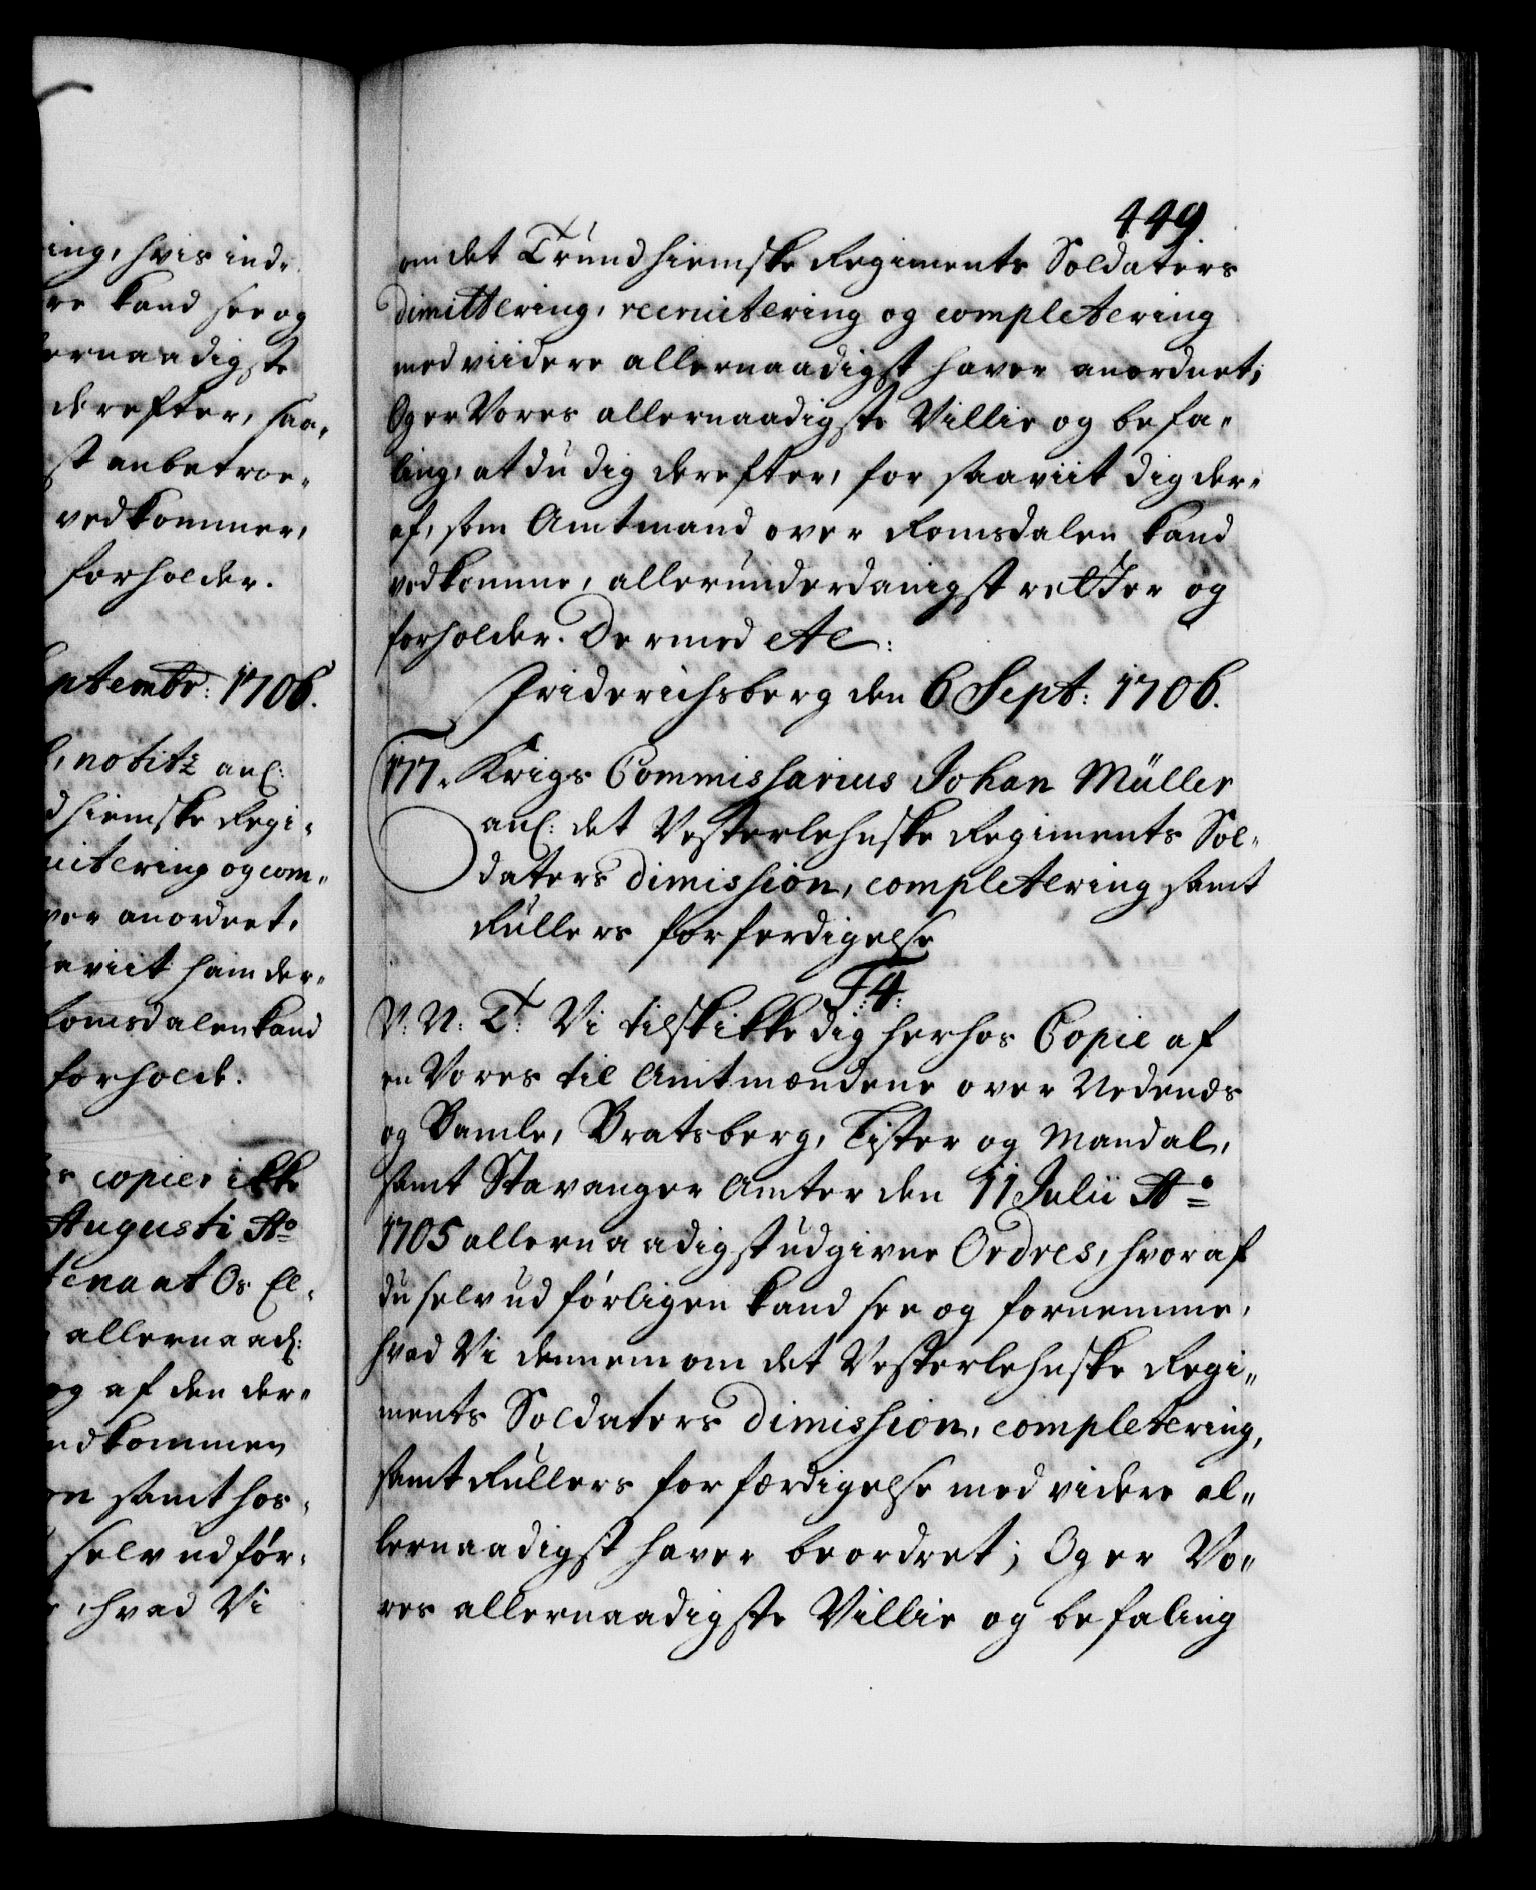 ing, hvis ind-
re kand see og
ernaadigste
derefter, saa,
st anbetroe,,
vedkommer,
forholder.
ptembr: 1706.
notitz anl:
dhiemske Regi,,
uitering og com,,
ver anordnet,
aviit ham der,,
Romsdalen kand
forholde.
copier ikke
Augusti Ao
tenant Os El,
allernaad:
og af den der,,
indkommen
en samt hos,
selv udfør,
, hvad Vi
449
om det Trundhiemske Regiments Soldaters
dimittering, recruitering og completering
med viidere allernaadigst haver anordnet;
Og er Vores allernaadigste Villie og befa,,
ling, at du dig derefter, for saaviit dig der,
af, som Amtmand over Romsdalen kand
vedkomme, allerunderdanigst retter og
forholder. Dermed etc:
Friderichsberg den 6 Sept: 1706.
177. Krigs Commissarius Johan Müller
anl: det Vesterlehnske Regiments Sol,,
daters dimission, completering samt
Rullers forferdigelse
F: 4:
V: N: T: Vi tilskikke dig herhos Copie af
en Vores til Amtmændene over Nedenæs
og Bamle, Bratsberg, Lister og Mandal,
samt Stavanger Amter den 11 Julii Ao
1705 allernaadigst udgivne Ordres, hvoraf
du selv udførligen kand see og fornemme,
hvad Vi dennem om det Vesterlehnske Regi,,
ments Soldaters dimission, completering,
samt Rullers forfærdigelse med videre al,,
lernaadigst haver beordret; Og er Vo,,
res allernaadigste Villie og befaling